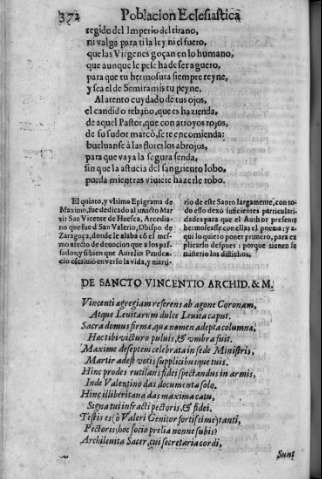 372 Poblacion Eclesiastica
regido del Imperio del tirano,
ni valga para ti la ley ni el fuero,
que las Virgenes goçan en lo humano,
que aunque le pese ha de ser aguero,
para que tu hermosura siempre reyne,
y sea el de Semiramis tu peyne.
Al atento cuydado de tus ojos,
el candido rebaño, que es hazienda,
de aquel Pastor, que con arroyos rojos,
de su sudor marcò, se te encomienda:
buelvanse à las flores los abrojos,
para que vaya la segura senda,
sin que la astucia del sangriento lobo,
pueda mientras viuiere hazerle robo.
El quinto, y vltimo Epigrama de
Maximo, fue dedicado al inuicto Mar
tir San Vicente de Huesca, Arcedia-
no que fue d San Valerio, Obispo de
Zaragoça, donde le alaba cõ el mes-
mo afecto de deuocion que à los pas-
sados, y si bien que Aurelio Pruden-
cio escriuiò en verso la vida, y marti-
rio de este Santo largamente, con to-
do esso dexò suficientes particulari-
dades para que el Author presente
hermoseasse con ellas el poema: y a-
qui lo quiero poner primero, para ex
plicarlo despues; porque tienen su
misterio los distichos.
DE SANCTO VINCENTIO ARCHID. & M.
Vincenti agregiam referens ab agone Coronam,
Atque Leuitarum dulce Leuita caput.
Sacra domus firmæ, quæ nomen adepta columnæ,
Hæc tibi victuro puluis, & vmbra fuit.
Maxime deseptem celebrata in sede Ministris,
Martir adest votis supplicibusque tuis.
Hinc prodes rutilans fidei spectandus in armis,
Inde Valentino das documenta solo.
Hinc illiberitana das maxima catu,
Signa tui infracti pectoris, & fidei.
Testis es, ò Valeri Genitor fortissime, tanti,
Pectoris, hoc socio prelia nonne subis?
Archileuita Sacer, cui secretaria cordi,
Sunt